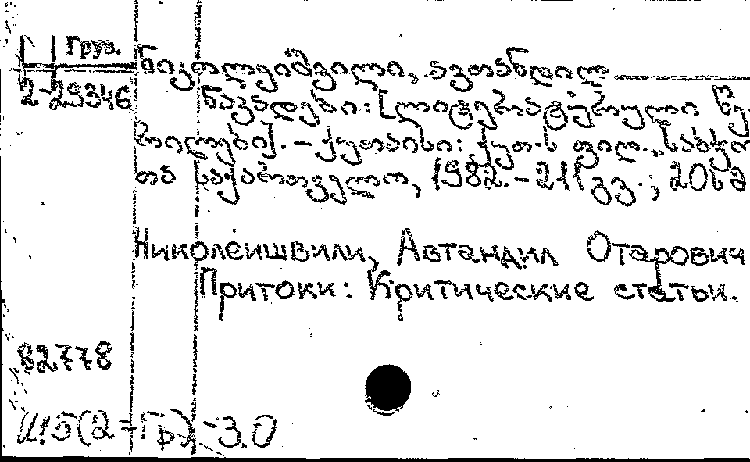 Груз.
ნიკოლეიშვილი, ავთანდილ
2-29346 ნაკადები: [ლიტერატურული წე-
რილები]. – ქუთაისი: ქუთ-ს ფილ. „საბჭო-
თა საქართველო, 1982. – 211 გვ.; 20სმ
Николеишвили, Автандил Отарович
Притоки: Критические статьи.
82778
Ш5(2=Гр)-3.0